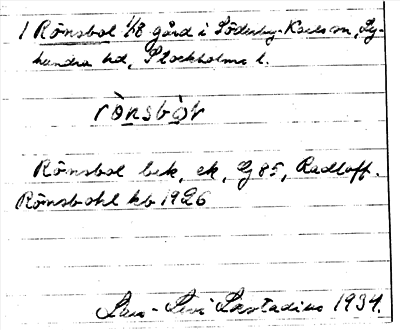 1 Rönsbol 1/8 gård i Söderby-Karls sn, Ly-
hundra hd, Stockholms l.
rònsbòr
Rönsbol bek, ek, G 85, Radloff.
Rönsbohl kb 1926
Lars-Levi Læstadius 1934.